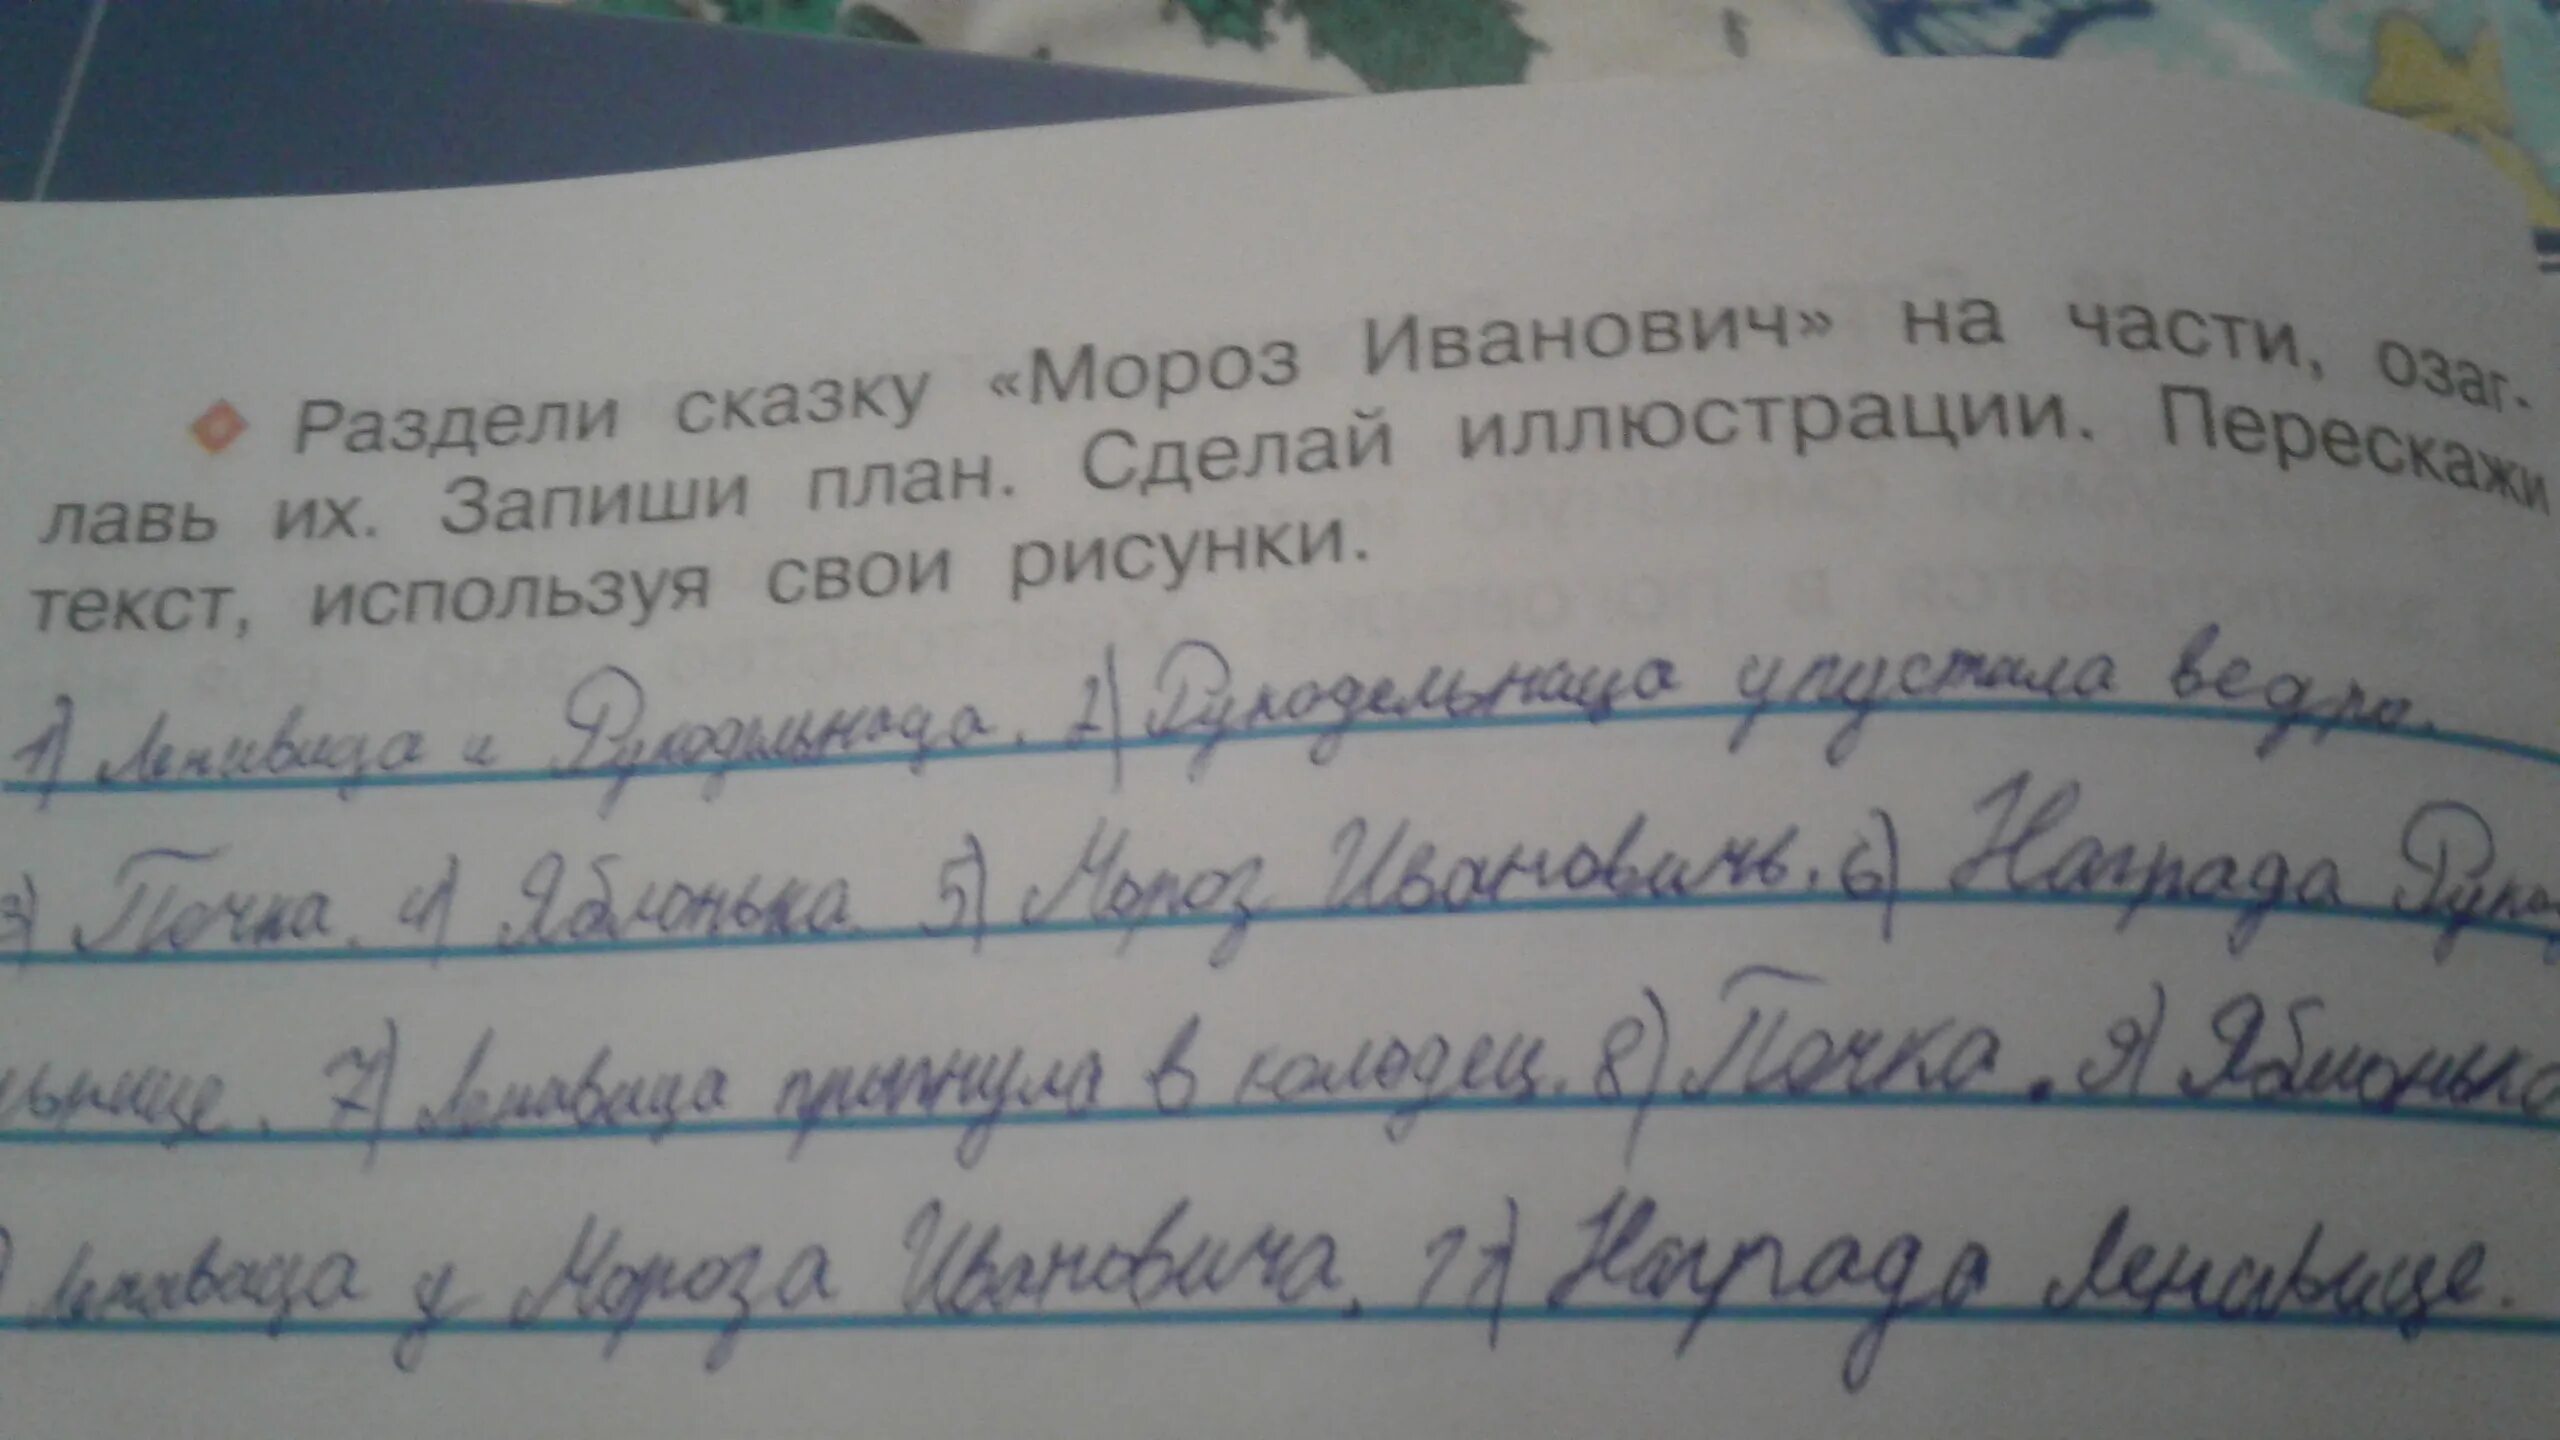 Раздели сказку «Мороз Иванович» на части, озаг-
лавь их. Запиши план. Сделай иллюстрации. Перескажи
текст, используя свои рисунки.
1) Ленивица и Рукодельница. 2) Рукодельница упустила ведро.
3) Печка. 4) Яблонька 5) Мороз Ивановичь. 6) Награда Рукод
льнице. 7) Ленивица прыгнула в колодец. 8) Печка. 9) Яблонька
) Ленивица у Мороза Ивановича. 11) Награда Ленивице.